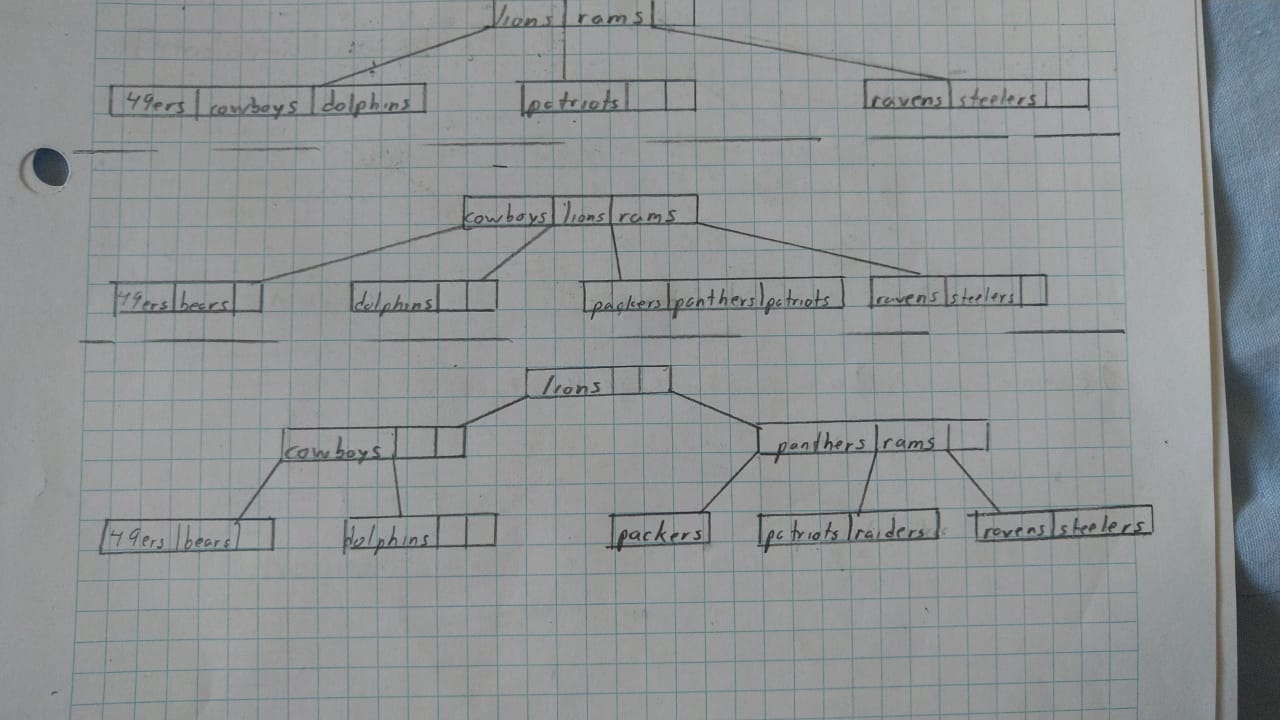 lions rams
49ers cowboys dolphins patriots ravens steelers
cowboys lions rams
49ers bears dolphins packers panthers patriots ravens steelers
lions
cowboys panthers rams
49ers bears dolphins packers patriots raiders ravens steelers